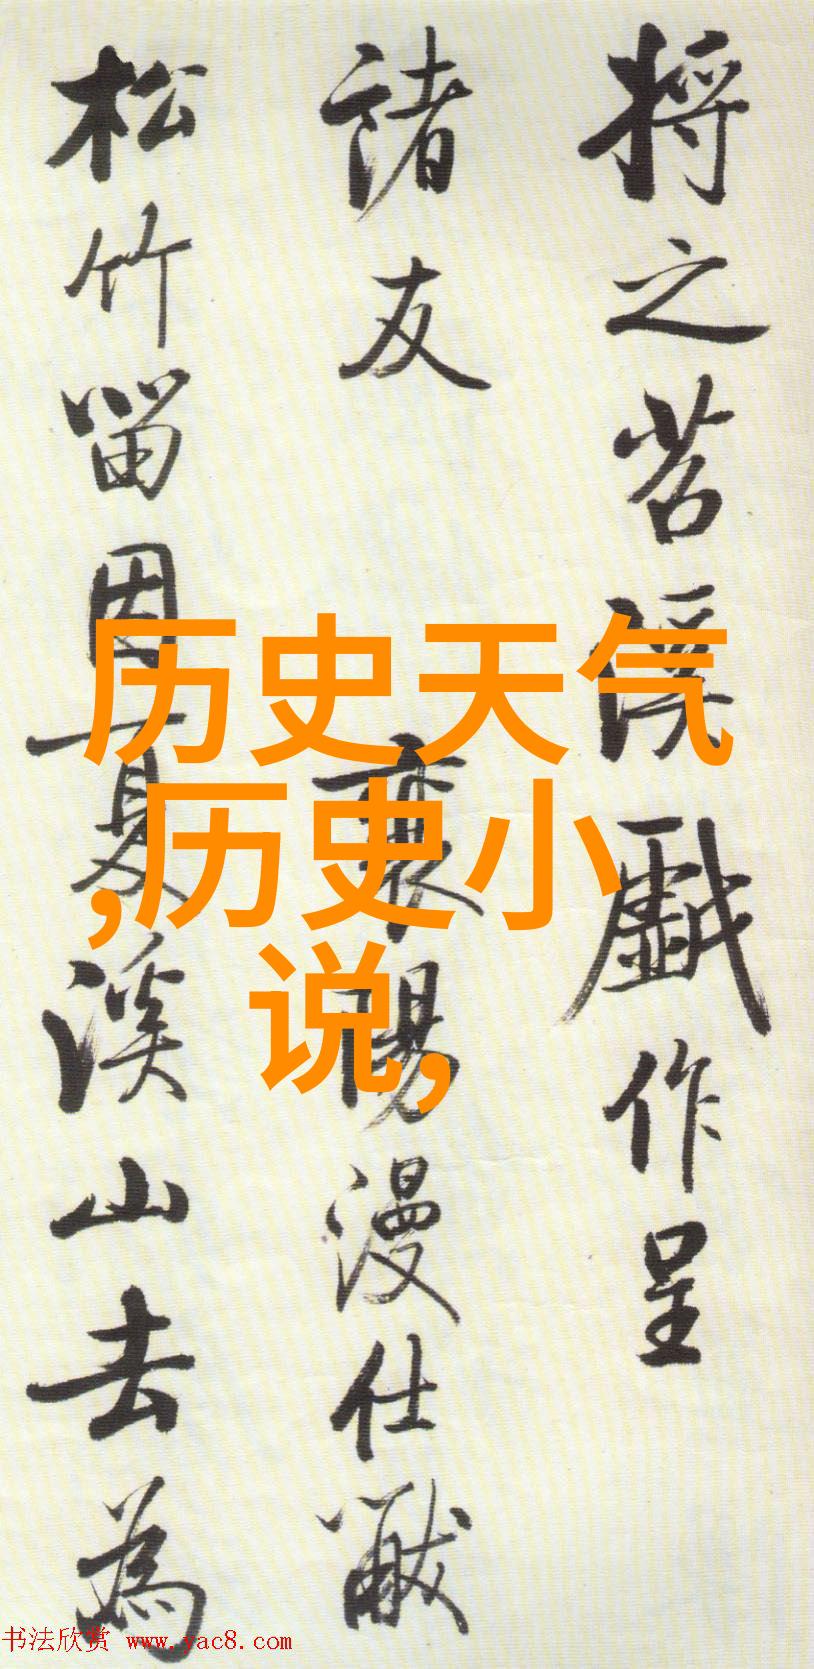 將之苕溪戲作呈
諸友 襄陽漫仕黻
松竹留因夏溪山去為
历史天气
,历史小
说,
书法欣赏 www.yac8.com